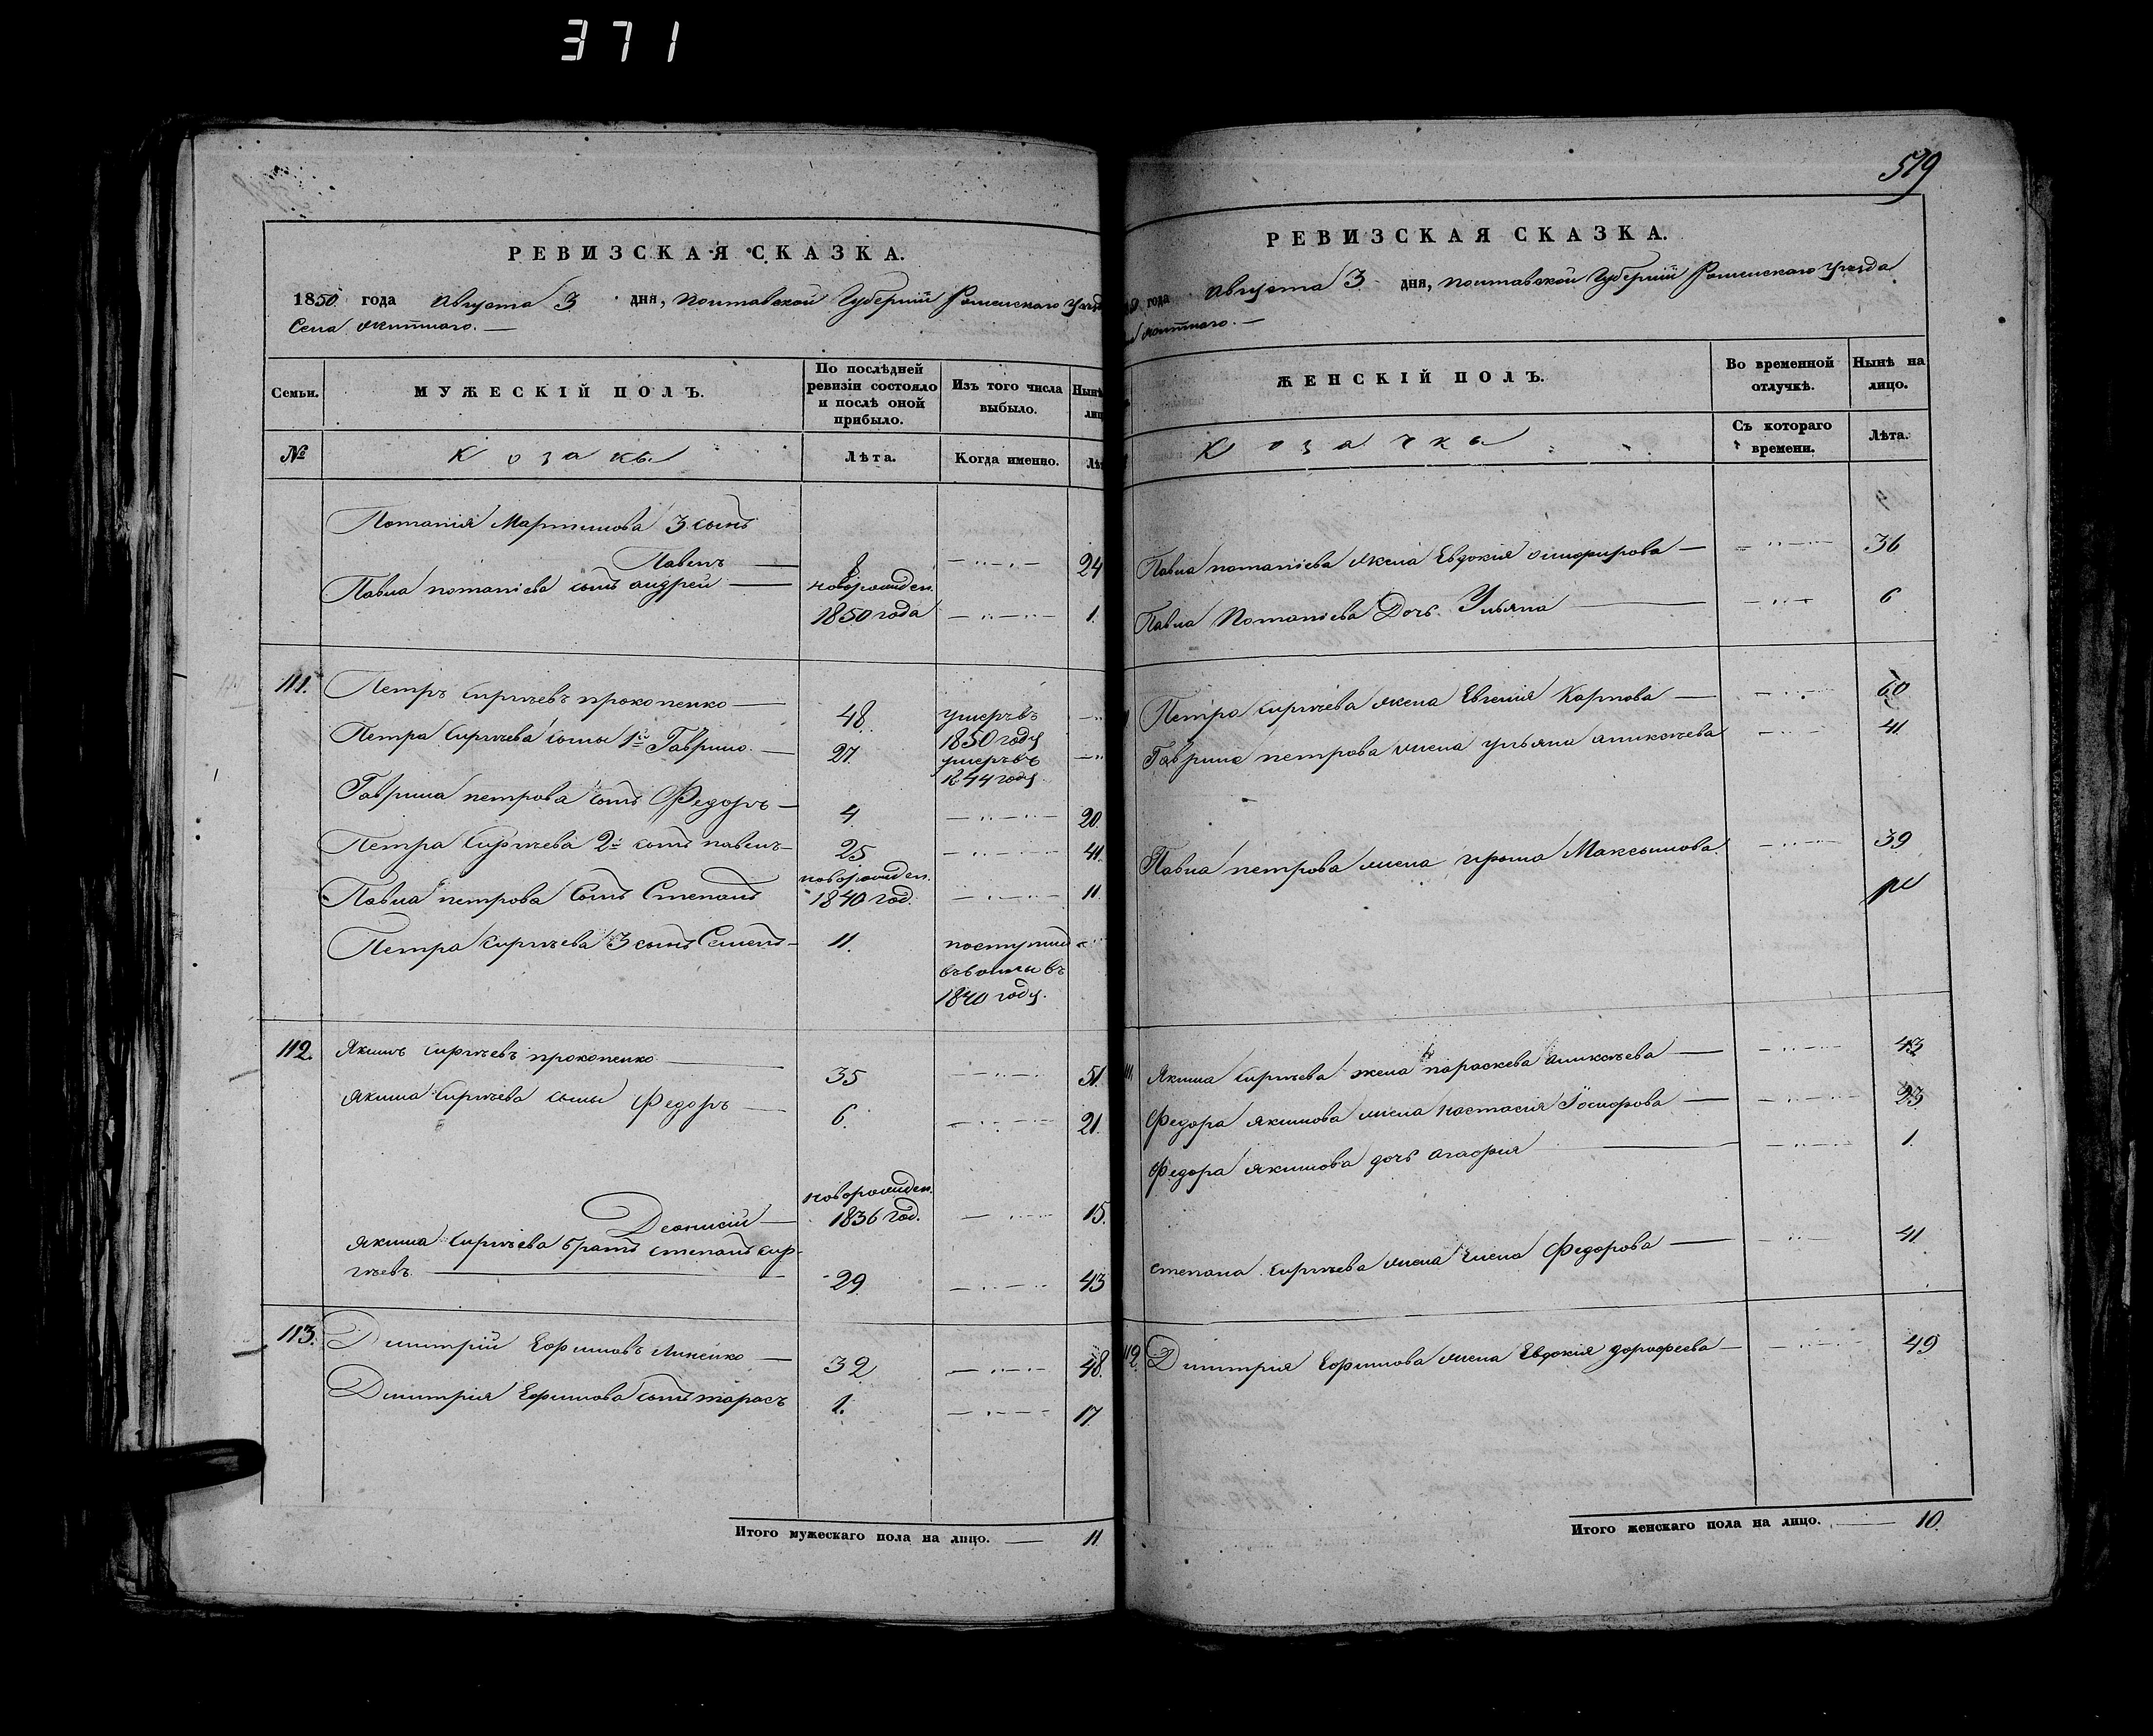 371
РЕВИЗСКАЯ СКАЗКА.
1850 года Августа 3 дня, Полтавской Губернии Роменскаго Уезд
Села
Семьи.
МУЖЕСКІЙ ПОЛЪ.
По послѣдней ревизіи состояло и послѣ оной прибыло.
Изъ того числа выбыло.
Нынѣ
№
Козаки
Лѣта.
Когда именно.
Потапія Мартинова 3 сынъ
Павелъ 8 24
Павла потапіева сынъ андрей новорожден.
1850 года 1.
111. Петръ Сиргѣевъ прокопенко 48. умеръ въ
1850 году
Петра Сиргѣева сыны 1й Гаврило 27. умеръ въ
1844 году
Гаврила петрова сынъ Федоръ 4 20.
Петра Сиргѣева 2й сынъ павелъ 25 41.
Павла петрова Сынъ Степанъ новорожден.
1840 год. 11
Петра Сиргѣева 3 сынъ Семенъ 11. поступил
въ
1840 году.
112. Якимъ Сиргѣевъ прокопенко 35 51.
Якима Сиргѣева сыны Федоръ 6. 21.
новорожден.
Деонисій 1836 год. 15.
Якима Сиргѣева братъ степанъ сир-
гѣевъ 29 43
113. Димитрій Ефимовъ 32 48.
Димитрія Ефимова сынъ тарасъ 1. 17
Итого мужескаго пола на лицо. 11
519
РЕВИЗСКАЯ СКАЗКА.
года Августа 3 дня, полтавской Губернии Роменскаго Уезда
ЖЕНСКІЙ ПОЛЪ.
Во временной отлучкѣ.
Нынѣ на лицо.
Козачки
Съ котораго времени.
Лѣта.
Павла потапіева жена Евдокия 36
Павла Потапіева Дочь Ульяна 6
Петра Сиргѣева жена Евгения Карпова 60
Гаврила петрова жена ульяна аликсѣева 41
Павла петрова жена ирына Максымова 39
Якима Сиргѣева жена параскева аликсѣева 43
Федора Якимова жена настасия Іосифова 23
Федора Якимова дочь агафия 1.
степана Сиргѣева жена елена Федорова 41
112. Димитрия Ефимова жена Евдокия дорофеева 49
Итого женскаго пола на лицо. 10.